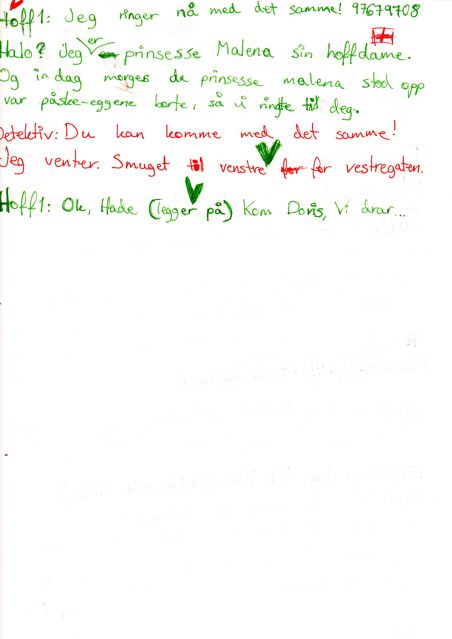 Hoff1: Jeg ringer nå med det samme! 97679708
Halo? Jeg er prinsesse Malena sin hoffdame.
Og i dag morges da prinsesse malena stod opp
var påske-eggene borte, så vi ringte til deg.
Detektiv: Du kan komme med det samme!
Jeg venter. Smuget til venstre for vestregaten.
Hoff1: Ok, Hade (legger på) Kom Doris, Vi drar...